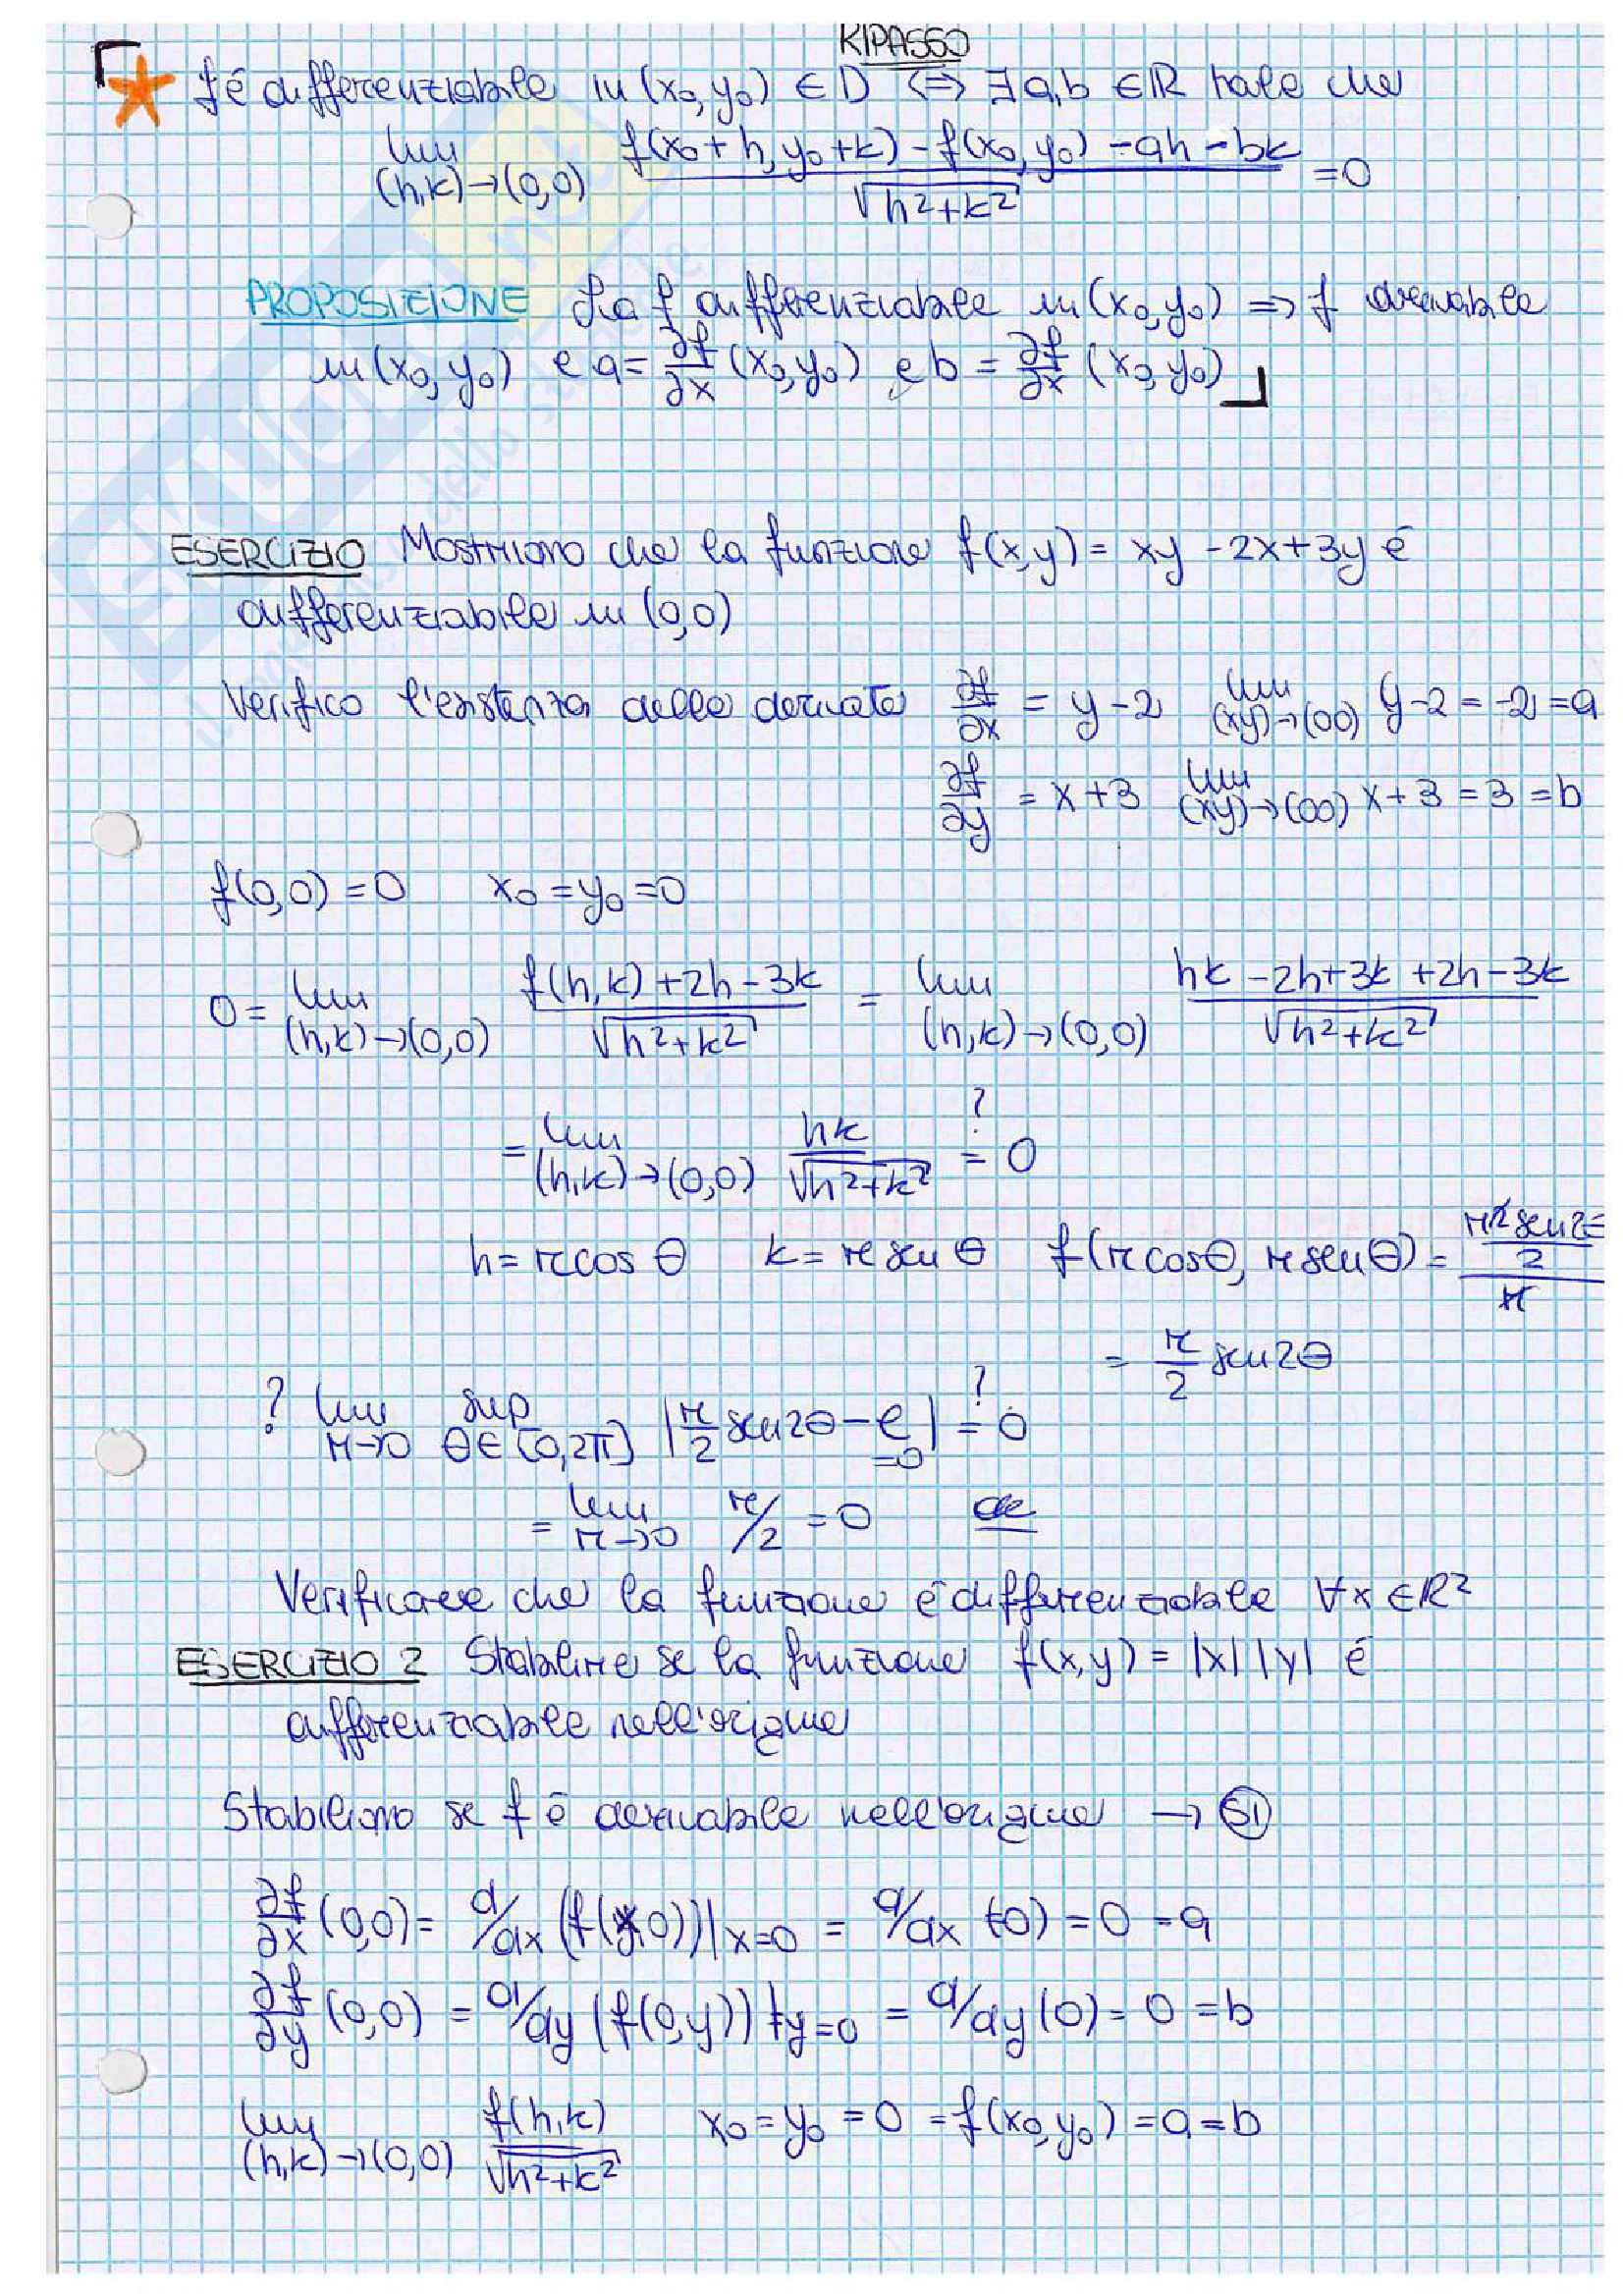 RIPASSO
f é differenziabile in (x₀,y₀) ∈ D ⟺ ∃ a,b ∈ ℝ tale che
lim (h,k)→(0,0) f(x₀+h, y₀+k) - f(x₀,y₀) - ah - bk / √h²+k² = 0
PROPOSIZIONE Sia f differenziabile in (x₀,y₀) ⟹ f derivabile
in (x₀,y₀) e a = ∂f/∂x (x₀,y₀) e b = ∂f/∂x (x₀,y₀)
ESERCIZIO Mostriamo che la funzione f(x,y) = xy - 2x + 3y é
differenziabile in (0,0)
Verifico l'esistenza delle derivate ∂f/∂x = y - 2 lim (xy)→(00) y - 2 = -2 = a
∂f/∂y = x + 3 lim (xy)→(00) x + 3 = 3 = b
f(0,0) = 0 x₀ = y₀ = 0
0 = lim (h,k)→(0,0) f(h,k) + 2h - 3k / √h²+k² = lim (h,k)→(0,0) hk - 2h + 3k + 2h - 3k / √h²+k²
= lim (h,k)→(0,0) hk / √h²+k² =? 0
h = r cos θ k = r sen θ f(r cosθ, r senθ) = r² sen 2θ / 2 / r
= r/2 sen 2θ
? lim r→0 sup θ∈[0,2π] | r/2 sen 2θ - l | =? 0
=0
= lim r→0 r/2 = 0 ok
Verificare che la funzione é differenziabile ∀x ∈ ℝ²
ESERCIZIO 2 Stabilire se la funzione f(x,y) = |x| |y| é
differenziabile nell'origine
Stabiliamo se f é derivabile nell'origine → SI
∂f/∂x (0,0) = d/dx (f(x,0))|x=0 = d/dx (0) = 0 = a
∂f/∂y (0,0) = d/dy (f(0,y))|y=0 = d/dy (0) = 0 = b
lim (h,k)→(0,0) f(h,k) / √h²+k² x₀ = y₀ = 0 = f(x₀,y₀) = a = b